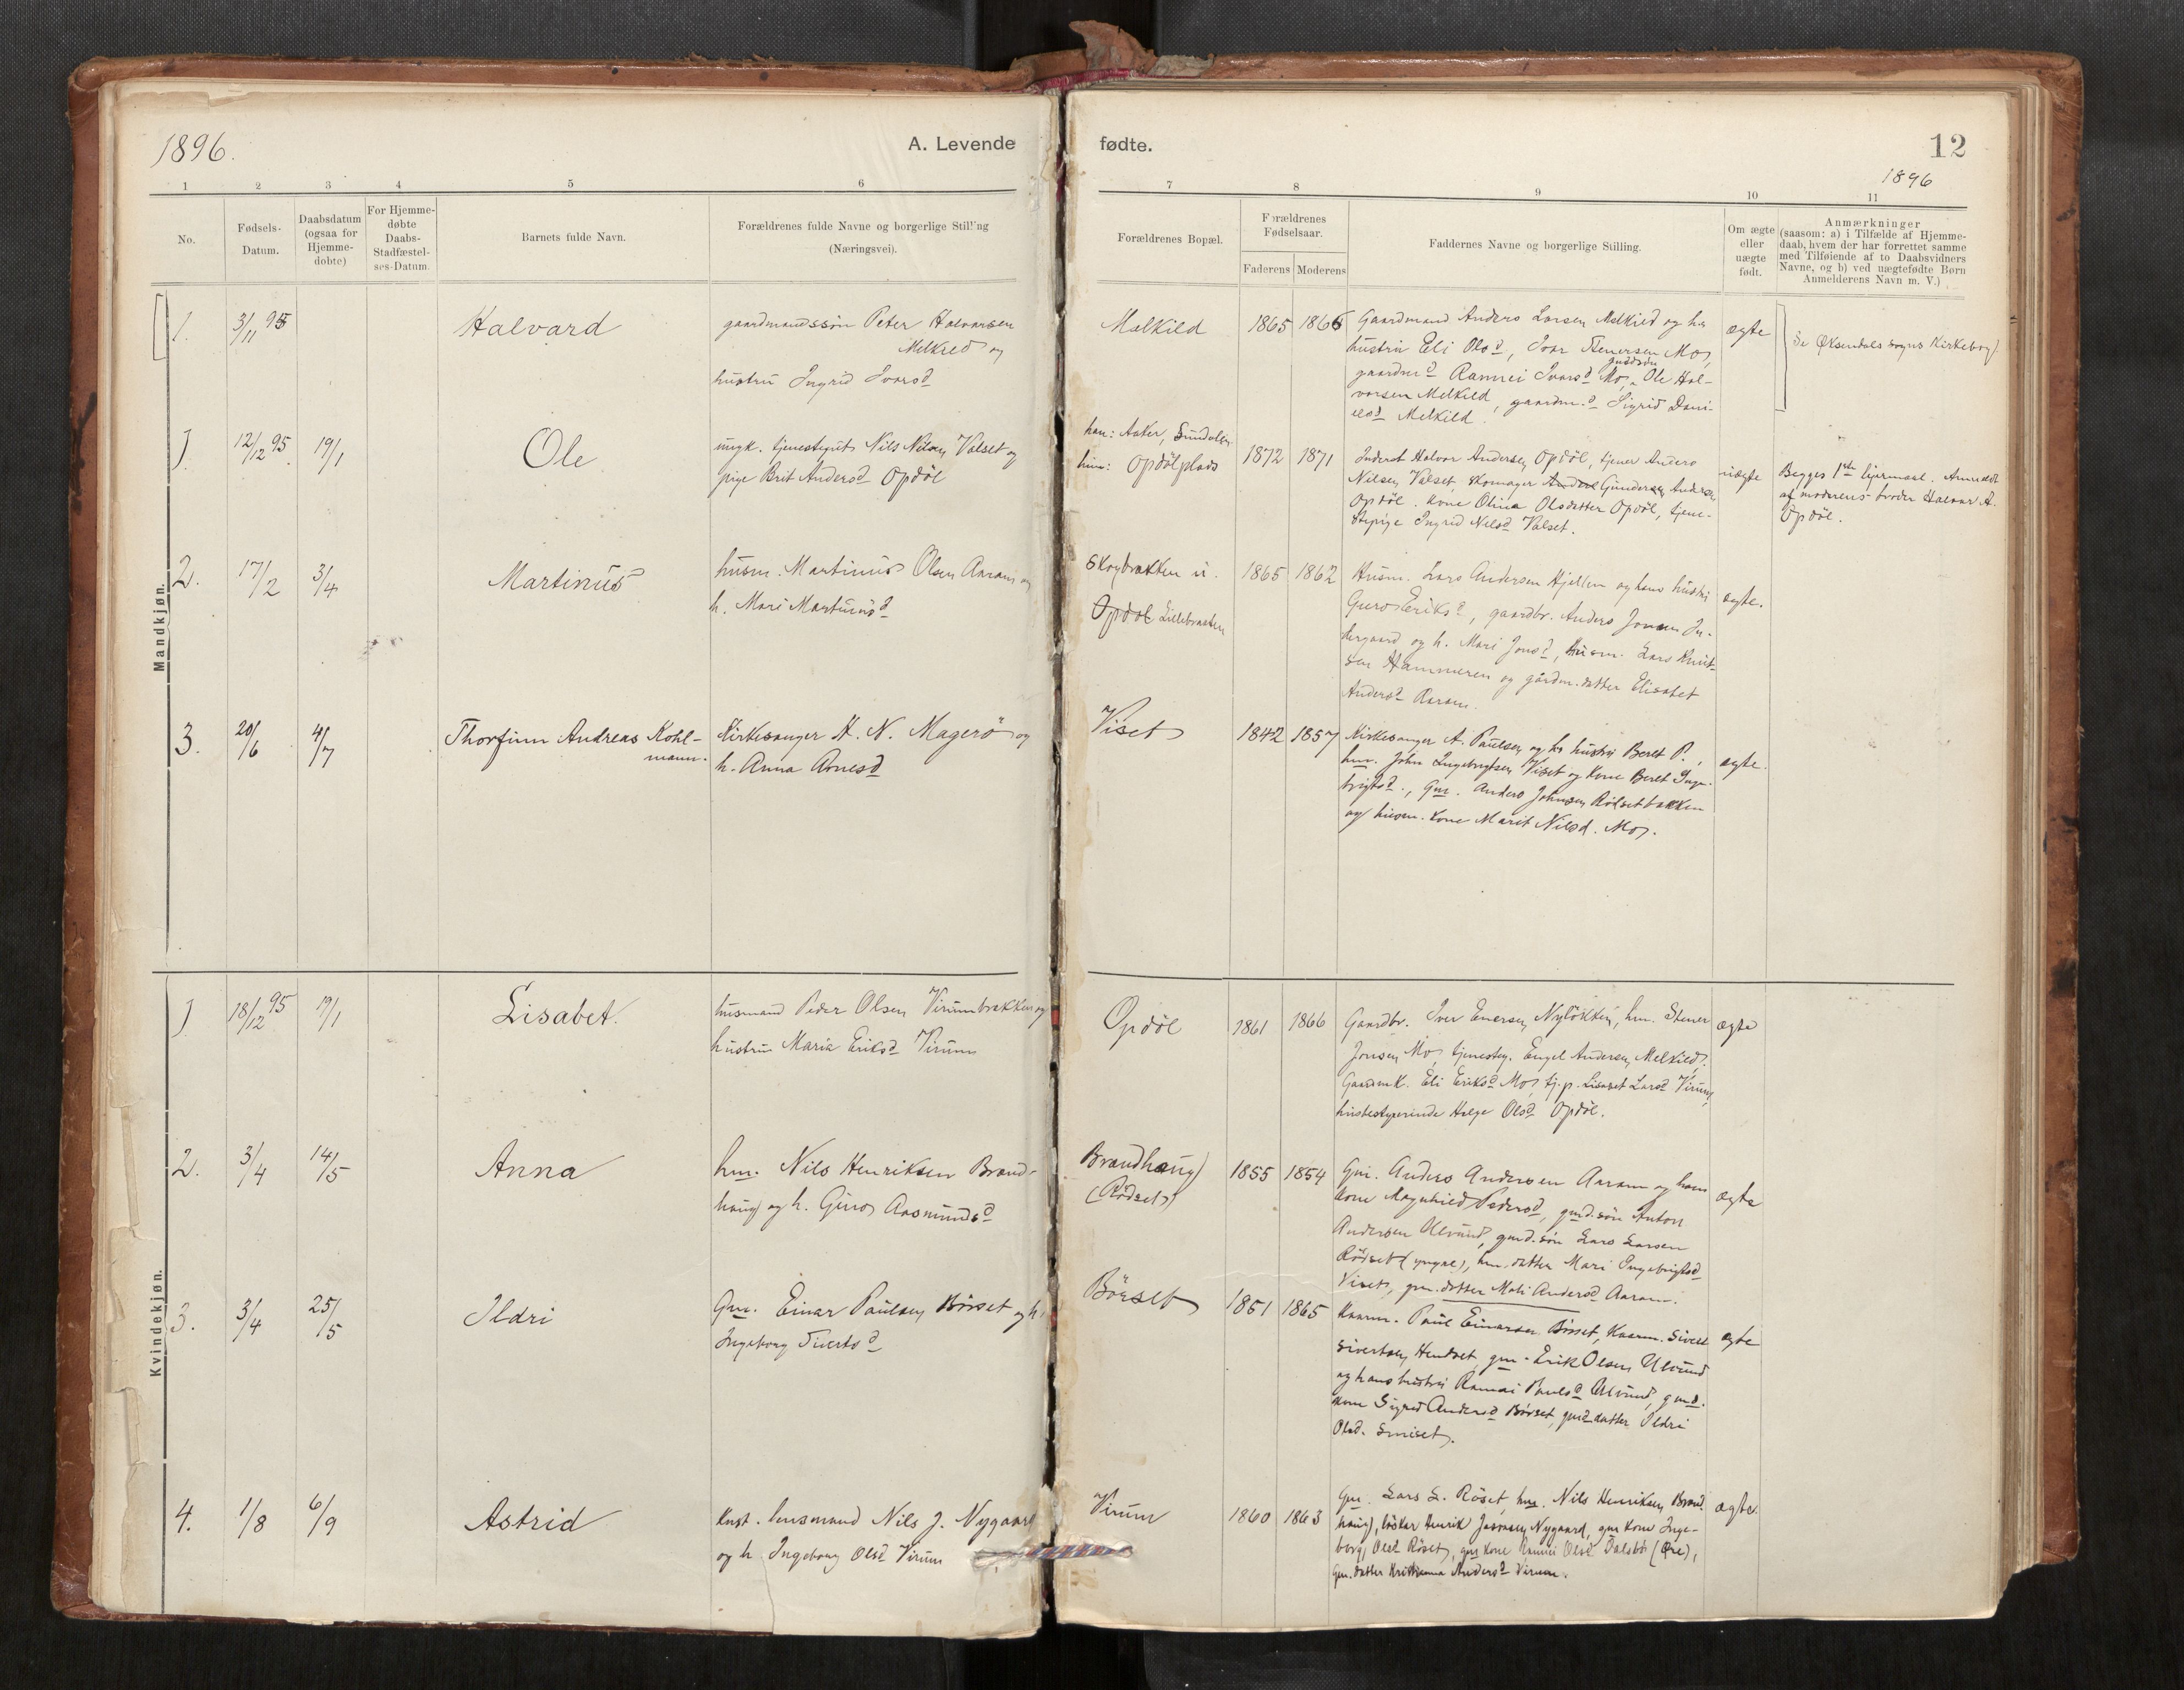 1896.
A. Levende
1 2 3 4 5 6
No.
Fødsels-
Datum.
Daabsdatum
(ogsaa for
Hjemme-
døbte)
For Hjemme-
døbte
Daabs-
Stadfæstel-
ses-Datum.
Barnets fulde Navn.
Forældrenes fulde Navne og borgerlige Stilling
(Næringsvei).
Mandkjøn.
1. 3/11 95 Halvard gaardmandssön Peter Halvorsen
Melkild og
hustru Ingrid Ivarsd
1 12/12 95. 19/1 Ole ungk. tjenestegut Nils Nilsen Valset og
pige Brit Andersd Opdöl
2. 17/2 3/4 Martinus husm. Martinus Olsen Aaram og
h. Mari Martinusd
3. 20/6 4/7 Thorfinn Andreas Kohl-
mann.
Kirkesanger H. N. Magerö og
h. Anna Arnesd
Kvindekjøn.
1 18/12 95 19/1 Lisabet. husmand Peder Olsen Virumbrekken og
hustru Maria Eriksd Virum
2. 3/4 14/5 Anna hm. Nils Henriksen Brand-
haug og h. Guro Aasmundsd
3. 3/4 25/5 Ildri Gm. Einar Paulsen Börset og h.
Ingeborg Sivertsd
4. 1/8 6/9 Astrid Knst. lensmand Nils J. Nygaard
og h. Ingeborg Olsd Virum
fødte.
12
1896
7 8 9 10 11
Forældrenes Bopæl.
Forældrenes
Fødselsaar.
Faderens Moderens
Faddernes Navne og borgerlige Stilling.
Om ægte
eller
uægte
født.
Anmærkninger
(saasom: a) i Tilfælde af Hjemme-
daab, hvem der har forrettet samme
med Tilføiende af to Daabsvidners
Navne, og b) ved uægtefødte Børn
Anmelderens Navn m. V.)
Melkild 1865 1866 Gaardmand Anders Larsen Melkild og hs
hustru Eli Olsd, Ivar Stenersen Mo,
gaardm.d Rannei Ivarsd Mo, Ole Hal-
vorsen Melkild, gaardm.d Sigrid Dani-
elsd Melkild.
ægte
Se Øksendals sogns Kirkebog.
han: Aaker, Sundalen
hun: Opdölplads
1872 1871 Inderst Halvor Andersen Opdöl, tjener Anders
Nilsen Valset, skomager Gunder Andersen
Opdöl. kone Olina Olsdatter Opdöl, tjene-
stepige Ingrid Nilsd Valset.
uægte
Begges 1ste leiermaal. Anmeldt
af moderens broder Halvor A.
Opdöl.
Skogbrækken u.
Opdöl Lillebrækken
1865 1862 Husm. Lars Andersen Hjellen og hans hustru
Guro Eriksd, gaardbr. Anders Jonsen In-
dergaard og h. Mari Jonsd, husm. Lars Knut-
sen Hammeren og gårdm. datter Elisabet
Andersd Aaram.
ægte.
Viset 1842 1857 Kirkesanger A. Paulsen og hs hustru Beret P.,
hm. John Ingebrigtsen Viset og Kone Beret Inge-
brigtsd., Gm. Anders Johnsen Rödsetbakken
og husm. kone Marit Nilsd. Mo.
ægte.
Opdöl 1861 1866 Gaardbr. Iver Enersen Nylökken, hm. Stener
Jonsen Mo, tjenestg. Engel Andersen Melkild,
Gaardm.k. Eli Eriksd Mo, tj.p. Lisabet Larsd Virum,
husbestyrerinde Helge Olsd Opdöl.
ægte
Brandhaug
(Rödset)
1855 1854 Gm. Anders Andersen Aaram og hans
kone Magnhild Pedersd, gmd. sön Anton
Andersen Ulvund, gmd. sön Lars Larsen
Rödset (yngre), hm. datter Mari Ingebrigtsd
Viset, gm. datter Mali Andersd Aaram.
ægte
Börset 1851 1865 Kaarm. Paul Einarsen Börset, Kaarm. Sivert
Sivertsen Hendset, gm. Erik Olsen Ulvund
og hans hustru Rannei Paulsd Ulvund, gmd.
kone Sigrid Andersd Börset, gmd datter Ildri
Olsd. Smiset.
ægte
Virum 1860 1863 Gm. Lars L. Röset, hm. Nils Henriksen Brand-
haug, lösker Henrik Nygaard, gm kone Inge-
borg Olsd Röset, gm kone Rannei Olsd Dalsbö (Öre),
Gm. datter Kristianna Andersd Virum.
ægte.